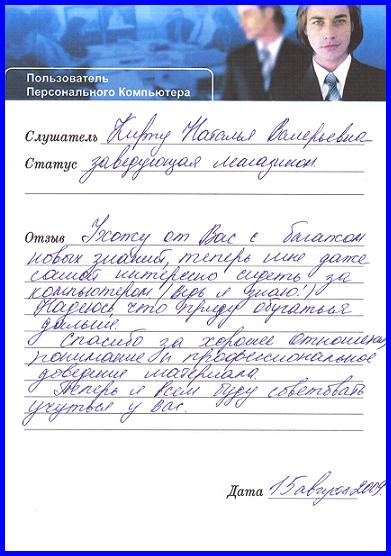 Пользователь
Персонального Компьютера
Слушатель Кирпу Наталья Валерьевна
Статус заведующая магазином
Отзыв Ухожу от Вас с багажом
новых знаний, теперь мне даже
самой интересно сидеть за
компьютером (ведь я знаю!)
Надеюсь, что приду обучаться
дальше.
Спасибо за хорошее отношение,
понимание и профессиональное
доведения материала.
Теперь я всем буду советовать
учиться у Вас.
Дата 15 августа 2009.